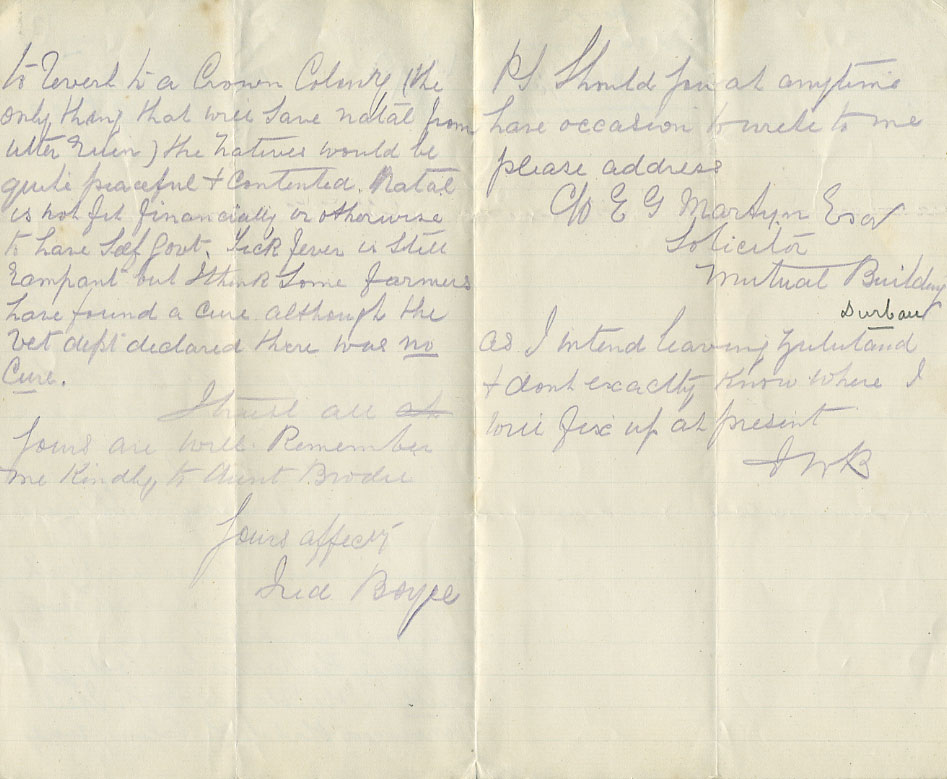 to revert to a Crown Colony (the
only thing that will save Natal from
utter ruin) the natives would be
quite peaceful & contented. Natal
is not fit financially or otherwise
to have Self Govt. Tick fever is still
rampant but I think some farmers
have found a cure although the
Vet dept declared there was no
Cure.
I trust all at
yours are well. Remember
me kindly to Aunt Brodie
Yours affectly
Fred Boyce
PS Should you at anytime
have occasion to write to me
please address
C/o E G Martyn Esqr
Solicitor
Mutual Building
Durban
as I intend leaving Zululand
& dont exactly know where I
will fix up at present
FWB